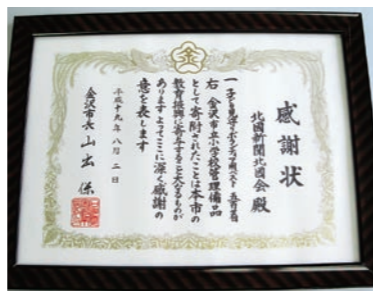 感謝状
北國新聞北國会 殿
一 子ども見守りボランティア用ベスト
右 金沢市立小学校管理備品
として寄附されたことは本市の
教育振興に寄与すること大なるものが
あります よってここに深く感謝の
意を表します
平成十九年八月二日
金沢市長 山出 保